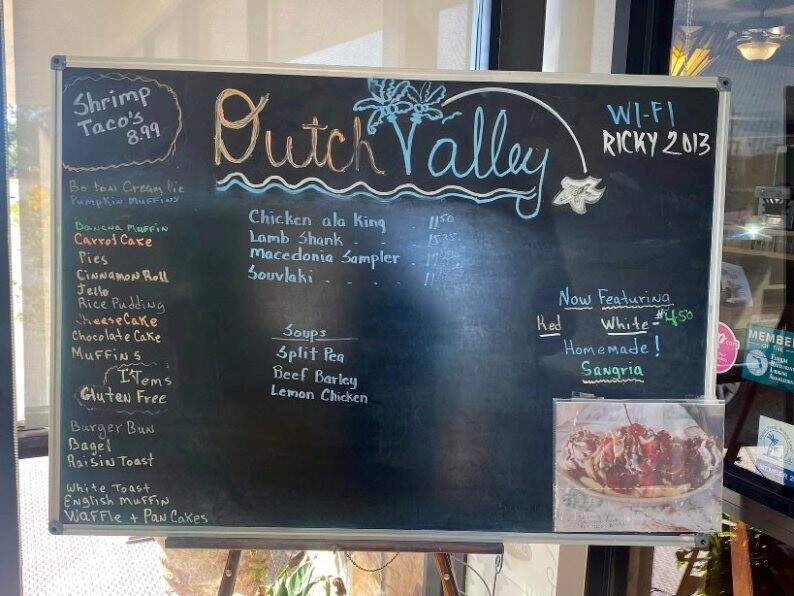 Shrimp
Taco's
8.99
Dutch Valley
WI-FI
RICKY 2013
Boston Cream Pie
Pumpkin Muffins
Banana Muffin
Carrot Cake
Pies
Cinnamon Roll
Jello
Rice Pudding
Cheese Cake
Chocolate Cake
Muffins
ITems
Gluten Free
Burger Bun
Bagel
Raisin Toast
White Toast
English Muffin
Waffle + Pan Cakes
Chicken ala King . 11.50
Lamb Shank . .
Macedonia Sampler .
Souvlaki . . . .
Soups
Split Pea
Beef Barley
Lemon Chicken
Now Featuring
Red White - $4.50
Homemade!
Sangria
MEMBER
OF THE
MEMBER